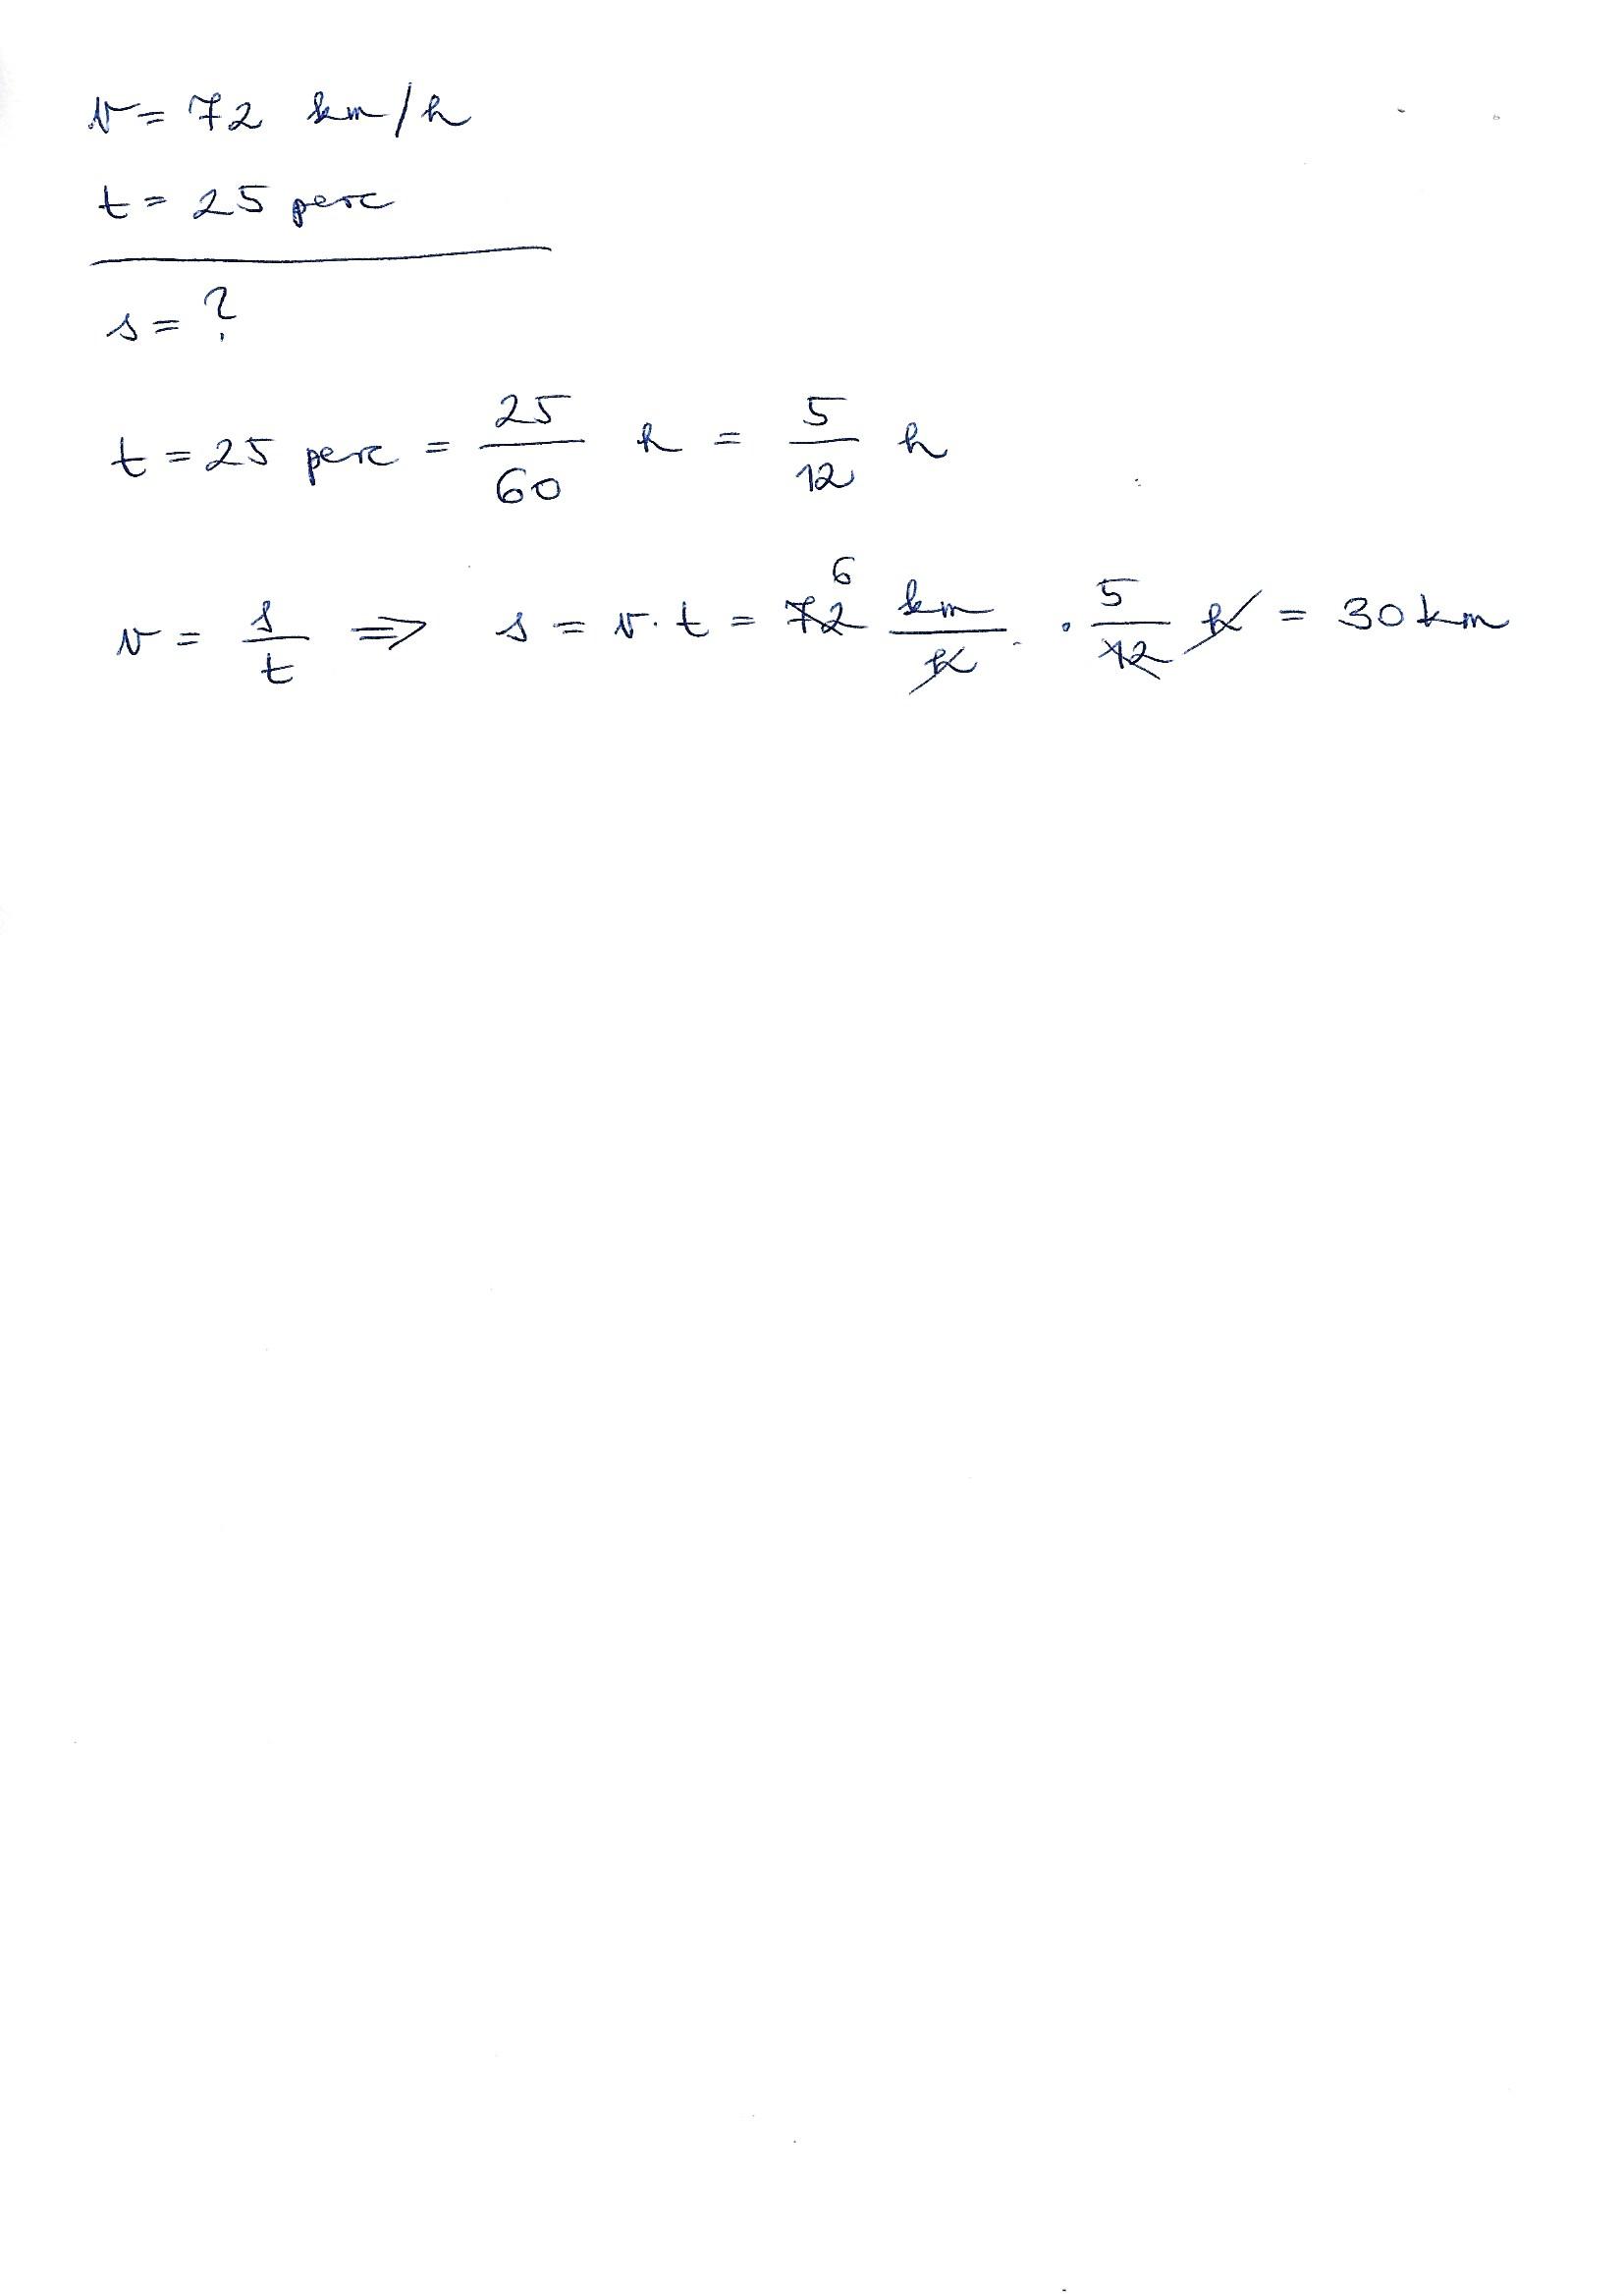 v = 72 km/h
t = 25 perc
s = ?
t = 25 perc = 25/60 h = 5/12 h
v = s/t ⇒ s = v · t = 72 6 km/h · 5/12 h = 30 km